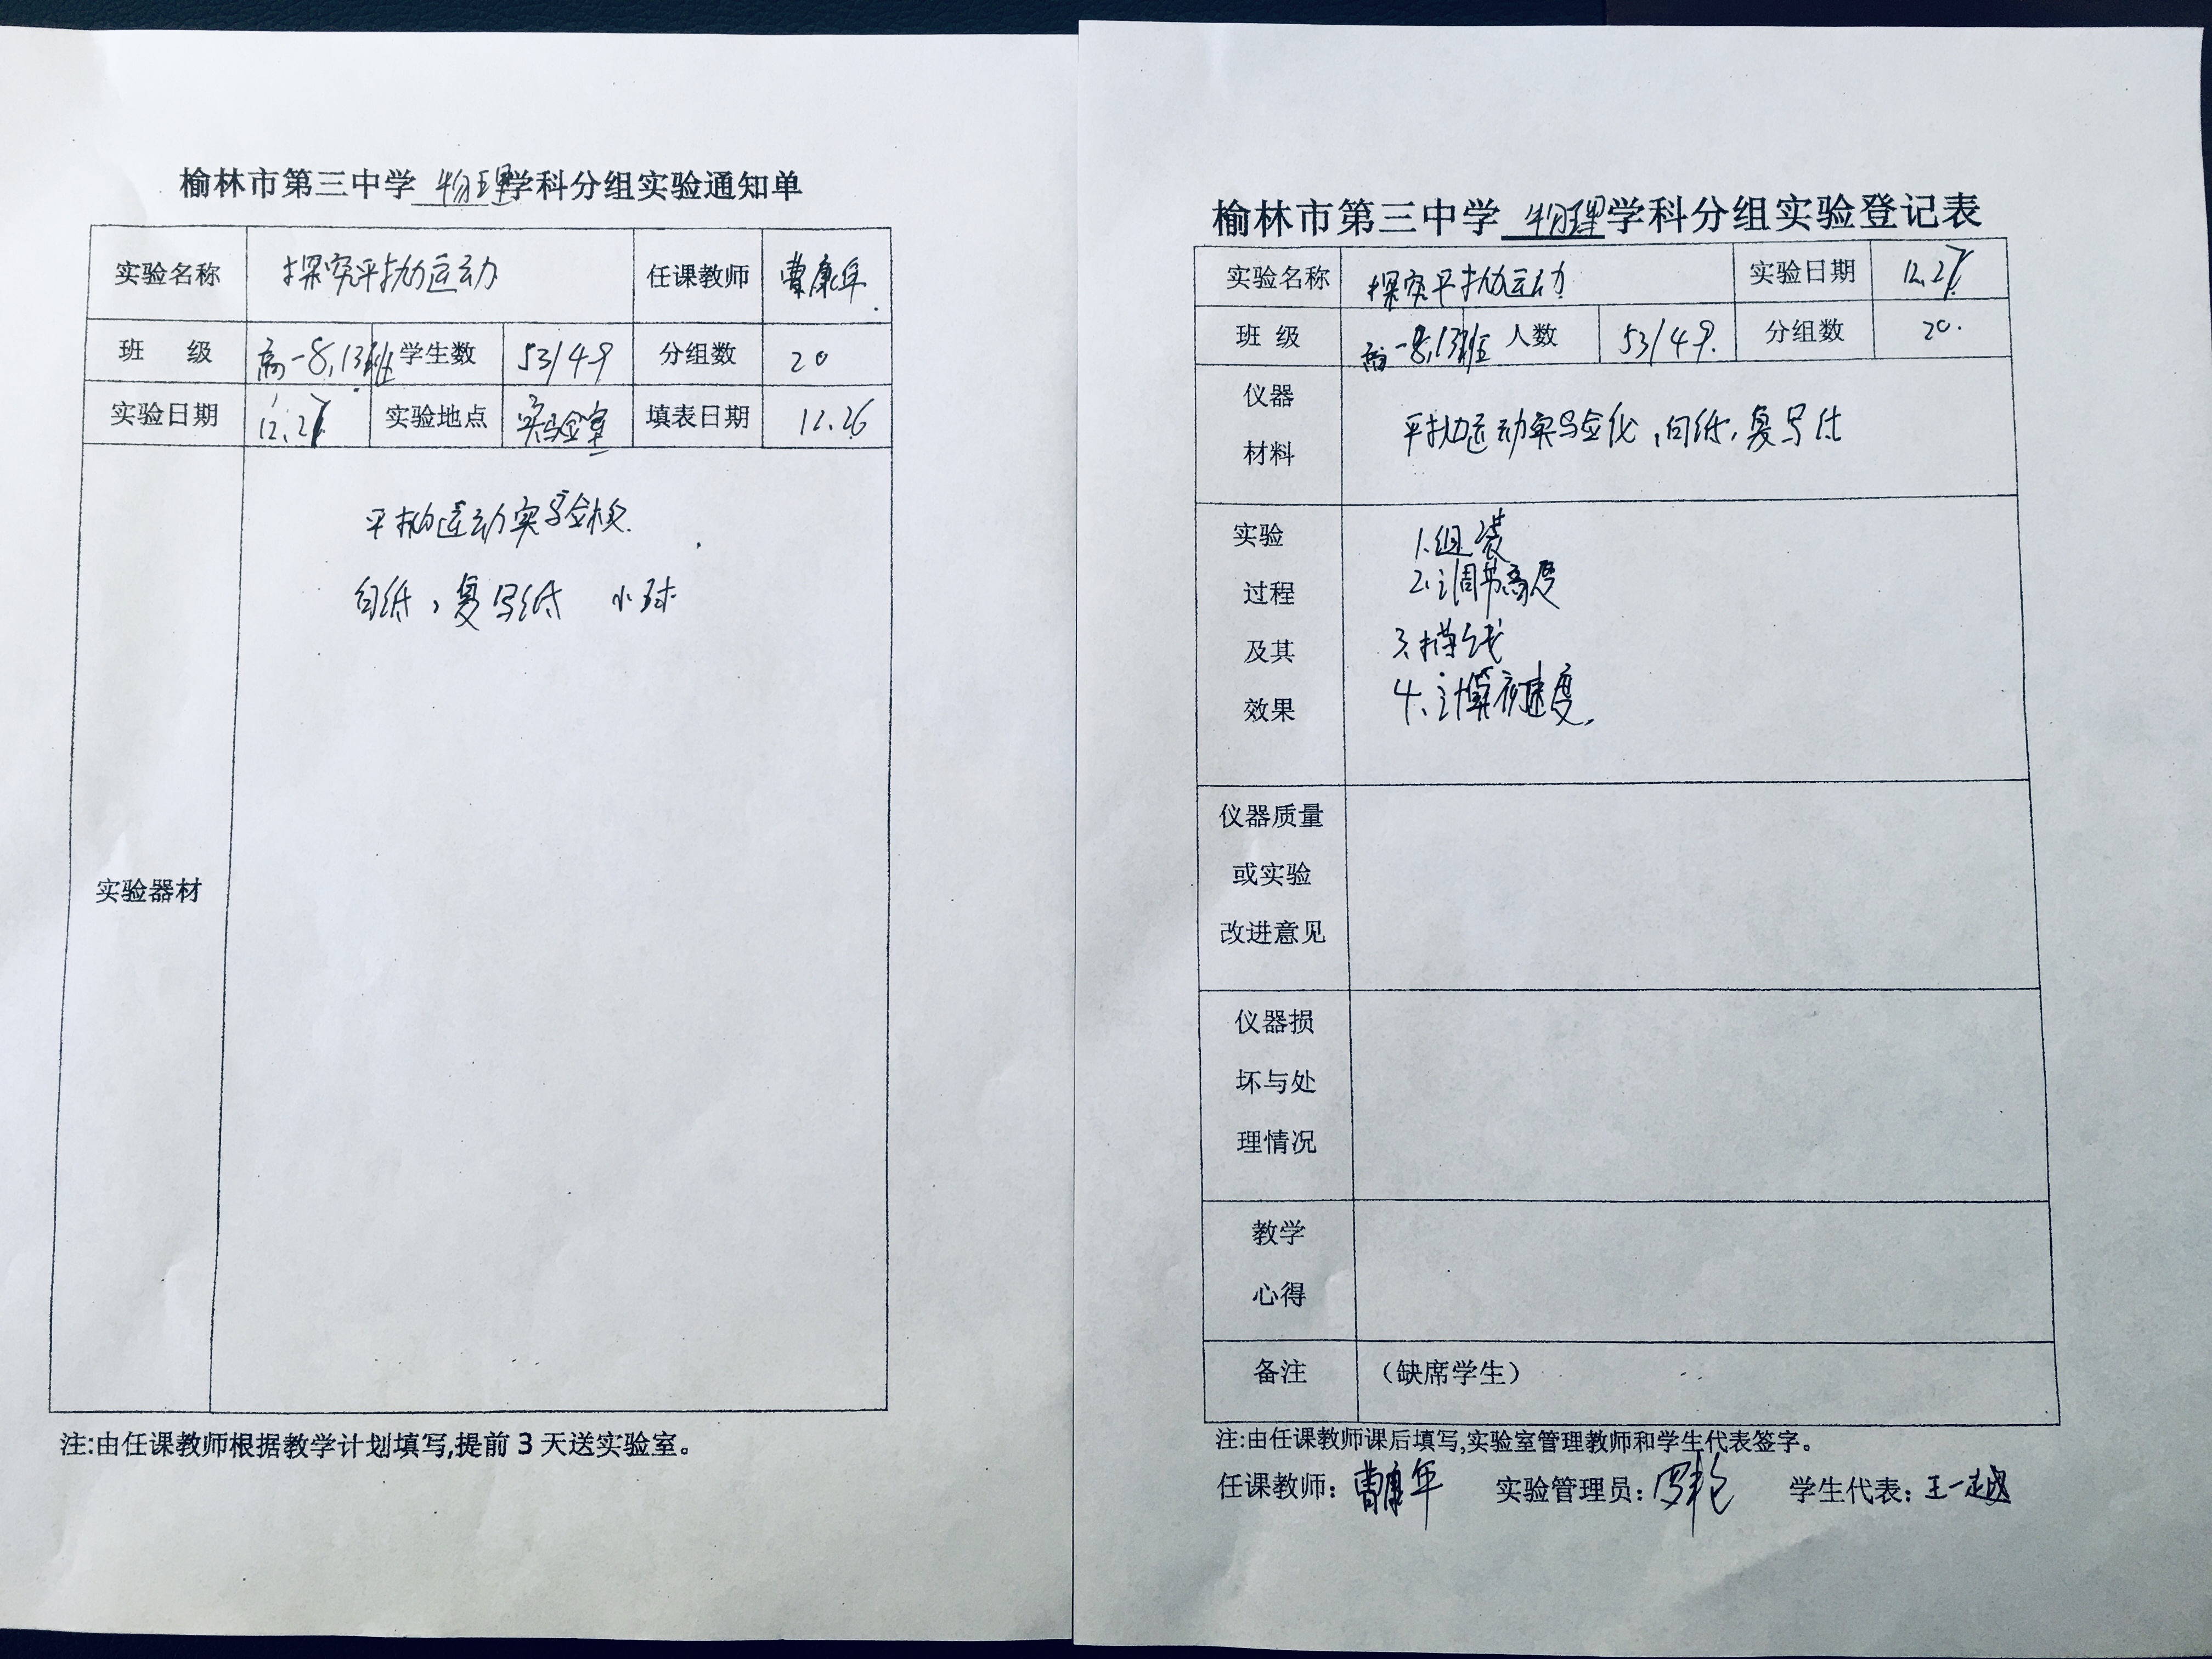 榆林市第三中学 物理学科分组实验通知单
实验名称 探究平抛运动 任课教师 曹康年
班 级 高一8,13班 学生数 53/49 分组数 20
实验日期 12.27 实验地点 实验室 填表日期 12.26
平抛运动实验仪
白纸,复写纸 小球
实验器材
注:由任课教师根据教学计划填写,提前3天送实验室。
榆林市第三中学 物理学科分组实验登记表
实验名称 探究平抛运动 实验日期 12.27
班 级 高一8,13班 人数 53/49. 分组数 20.
仪器
材料
平抛运动实验仪,白纸,复写纸
实验
过程
及其
效果
1.组装
2.调节高度
3.描线
4.计算初速度.
仪器质量
或实验
改进意见
仪器损
坏与处
理情况
教学
心得
备注 (缺席学生)
注:由任课教师课后填写,实验室管理教师和学生代表签字。
任课教师:曹康年 实验管理员: 学生代表:王一越